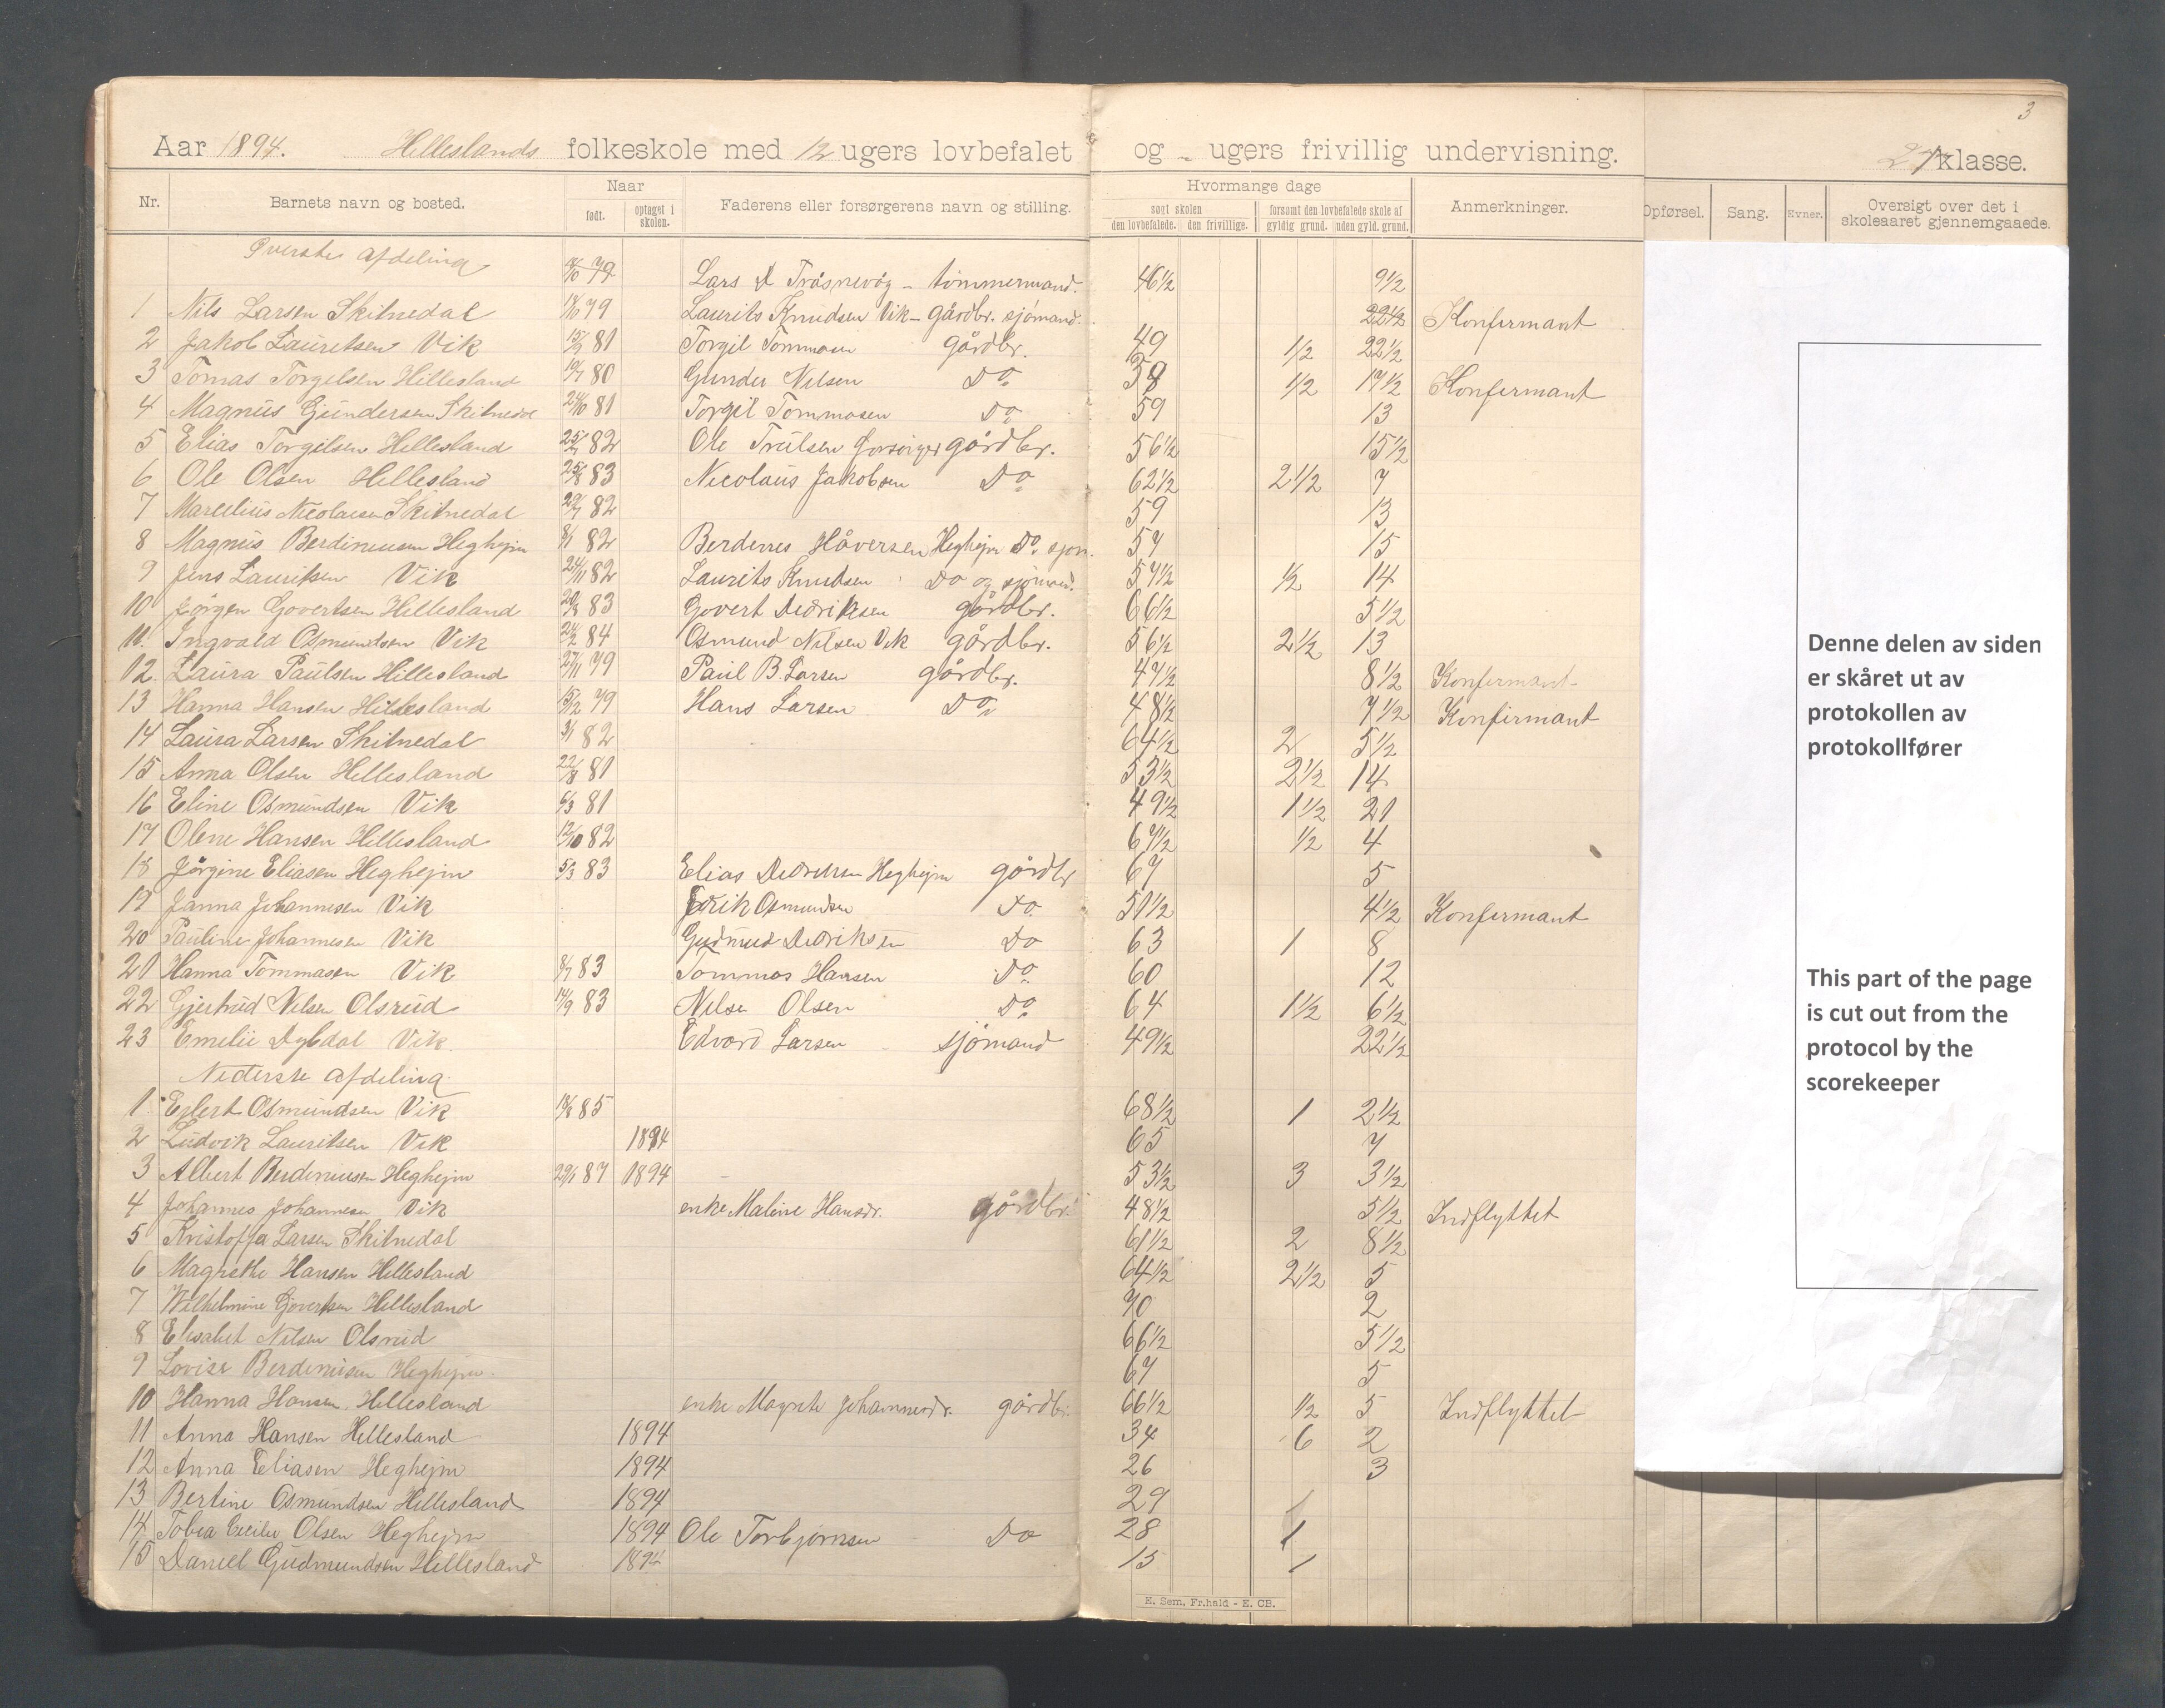 3
Aar 1894. Hilleslands folkeskole med 12 ugers lovbefalet og - ugers frivillig undervisning. klasse.
Nr. Barnets navn og bosted. Naar født. optaget i skolen. Faderens eller forsørgerens navn og stilling. Hvormange dage søgt skolen den lovbefalede. den frivillige. forsømt den lovbefalede skole af gyldig grund. uden gyld. grund. Anmerkninger. Opførsel. Sang. Evner. Oversigt over det i skoleaaret gjennemgaaede.
Øverste afdeling
79 Lars tømmermand. 46½ 9½
1 Nils Larsen Skitnedal 79 Laurits Knudsen Vik - gårdbr. sjømand. 22½ Konfirmant
2 Jakob Lauritsen Vik 81 Torgil Tommasen gårdbr. 49 ½ 22½
3 Tomas Torgilsen Hillesland 80 Gunder Nilsen Do ½ 17½ Konfirmant
4 Magnus Gundersen Skitnedal 81 Torgil Tommasen Do 59 13
5 Elias Torgilsen Hillesland 82 Ole Trulsen forsørger gårdbr. 56½ 15½
6 Ole Olsen Hillesland 83 Nicolaus Jakobsen Do 62½ 2½ 7
7 Marselius Nicolaisen Skitnedal 82 59 13
8 Magnus Berdinussen Heghejm 82 Håversen Heghejm Do 57 15
9 Jens Lauritsen Vik 24/11 82 Laurits Knudsen Do og sjømand. 57½ ½ 14
10 Jørgen Govertsen Hillesland 83 Govert Didriksen gårdbr. 66½ 5½
11. Ingvald Osmundsen Vik 84 Osmund Nilsen Vik gårdbr. 56½ 2½ 13
12. Laura Paulsen Hillesland 27/11 79 Paul B. Larsen gårdbr. 47½ 8½ Konfirmant
13 Hanna Hansen Hillesland 15/12 79 Hans Larsen Do 48½ 7½ Konfirmant
14 Laura Larsen Skitnedal 82 64½ 2 5½
15 Anna Olsen Hillesland 22/8 81 53½ 2½ 14
16 Eline Osmundsen Vik 6/3 81 49½ 1½ 21
17 Olene Hansen Hillesland 12/10 82 67½ ½ 4
18 Jørgine Eliasen Heghejm 5/3 83 Elias Didriksen Heghejm gårdbr 67 5
19 Janna Johannesen Vik Erik Osmundsen Do 51½ 4½ Konfirmant
20 Pauline Johannesen Vik Gudmud Didriksen Do 63 1 8
21 Hanna Tommasen Vik 8/7 83 Tommas Hansen Do 60 12
22 Gjertrud Nilsen Olsrud 14/9 83 Nilse Olsen Do 64 1½ 6½
23 Emelie Dybdal Vik. Edvard Larsen sjømand 49½ 22½
Nederste afdeling.
1. Eilert Osmundsen Vik 85 68½ 1 2½
2 Ludvik Lauritsen Vik 1894 65 7
3 Albert Berdinussen Heghejm 87 1894 53½ 3 3½
4 Johannes Johannesen Vik enke Maline Hansdr. gårdbr. 48½ 5½ Indflyttet
5 Kristoffa Larsen Skitnedal 61½ 2 8½
6 Magrethe Hansen Hillesland 64½ 2½ 5
7 Wilhelmine Govertsen Hillesland 70 2
8 Elisabet Nilsen Olsrud 66½ 5½
9 Lovise Berdinusen Heghejm. 67 5
10 Hanna Hansen Hillesland enke Magrete Johannesdr. gårdbr. 66½ ½ 5 Indflyttet
11 Anna Hansen Hillesland 1894 34 6 2
12 Anna Eliasen Heghejm 1894 26 3
13 Bertine Osmundsen Hillesland 1894 29 1
14 Tobea Cecilie Olsen Heghejm 1894 Ole Torbjørnsen Do 28 1
15 Daniel Gudmundsen Hillesland 1894 15 1
E. Sem, Fr.hald - E. CB.
Denne delen av siden
er skåret ut av
protokollen av
protokollfører
This part of the page
is cut out from the
protocol by the
scorekeeper